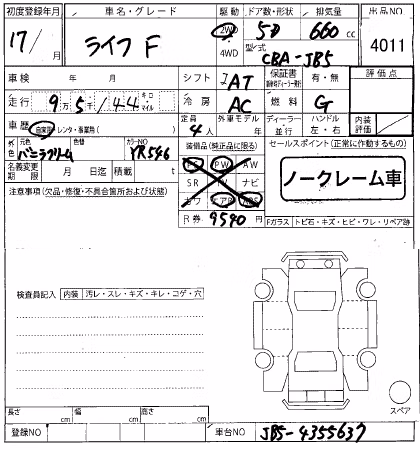 初度登録年月 車名・グレード 駆動 ドア数・形状 排気量 出品NO
17/ 月 ライフ F 2WD 4WD 5D 660 cc 4011
型式 CBA-JB5
車検 年 月 シフト AT 保証書 有・無 評価点
走行 9万5千/44 キロ マイル 冷房 AC 燃料 G
車歴 自家用・レンタ・事業用 定員 4人 外車モデル 年 ディーラー 並行 ハンドル 左・右 内装評価
色 元色 バニラクリーム 色替 カラーNO YR546 装備品(純正品に限る) セールスポイント(正常に作動するもの)
名義変更期限 月 日迄 積載 t PS PW AW
注意事項(欠品・修復・不具合箇所および状態) SR TV ナビ ノークレーム車
カワ エアB ABS
R券 9590 円 Fガラス トビ石・キズ・ヒビ・ワレ・リペア跡
検査員記入 内装 汚レ・スレ・キズ・キレ・コゲ・穴
スペア
長さ cm 幅 cm 高さ cm
登録NO 車台NO JB5-4355637